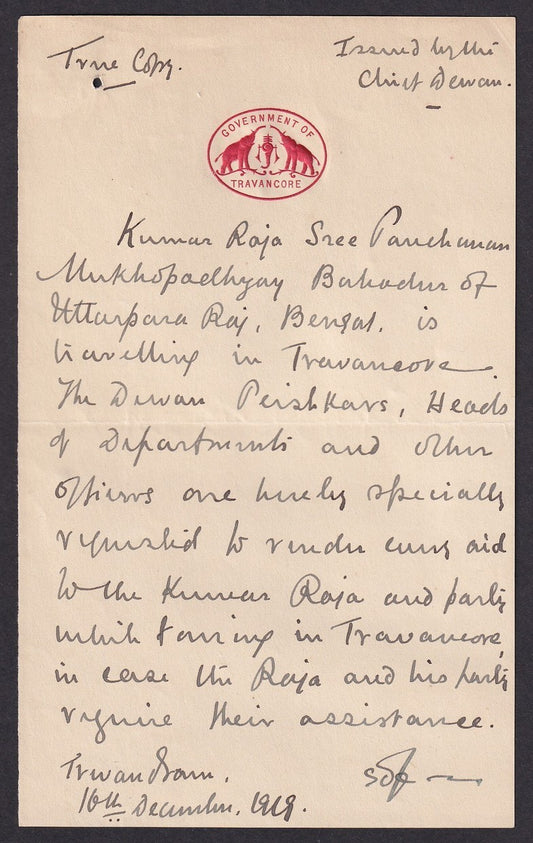 True Copy.
Issued by the
Chief Dewan.
GOVERNMENT OF
TRAVANCORE
Kumar Raja Sree Panchanan
Mukhopadhyay Bahadur of
Uttarpara Raj, Bengal, is
travelling in Travancore.
The Dewan Peishkars, Heads
of Departments and other
officers are hereby specially
requested to render every aid
to the Kumar Raja and party
while touring in Travancore,
in case the Raja and his party
require their assistance.
Trivandram.
16th December, 1919.
Sd/-